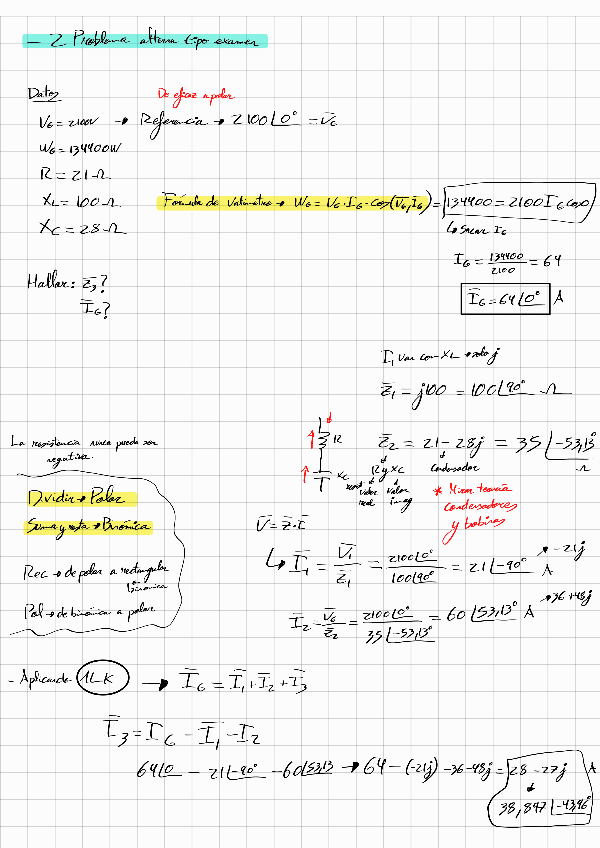 - 2 Problema alterna tipo examen
Datos
De eficaz a polar
VG = 2100V → Referencia → 2100∠0° = V̄G
WG = 134400W
R = 21Ω
XL = 100Ω
Fórmula de Vatímetro → WG = VG · IG · cos(V̄G, ĪG) = 134400 = 2100 IG cos0
XC = 28Ω
↳ Sacar IG
IG = 134400/2100 = 64
Hallar: Z̄3?
ĪG?
ĪG = 64∠0° A
I1 va con XL → solo j
Z̄1 = j100 = 100∠90° Ω
La resistencia nunca puede ser
negativa.
R
Z̄2 = 21 - 28j = 35∠-53,13° Ω
XC
R y XC
condensador
valor real
valor imag
* Mirar teoría
condensadores
y bobinas
Dividir → Polar
Suma y resta → Binómica
Rec → de polar a rectangular
binómica
Pol → de binómica a polar
V̄ = Z̄ · Ī
↳ Ī1 = V̄1/Z̄1 = 2100∠0°/100∠90° = 21∠-90° A → -21j
Ī2 = V̄G/Z̄2 = 2100∠0°/35∠-53,13° = 60∠53,13° A → 36+48j
- Aplicando 1LK → ĪG = Ī1 + Ī2 + Ī3
Ī3 = ĪG - Ī1 - Ī2
64∠0 - 21∠-90° - 60∠53,13 → 64 - (-21j) - 36 - 48j = 28 - 27j A
38,897∠-43,96°